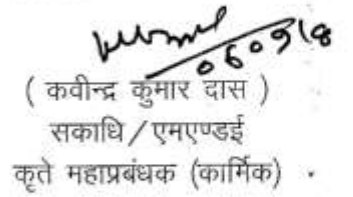 060918
( कवीन्द्र कुमार दास )
सकाधि / एमएण्डई
कृते महाप्रबंधक (कार्मिक)